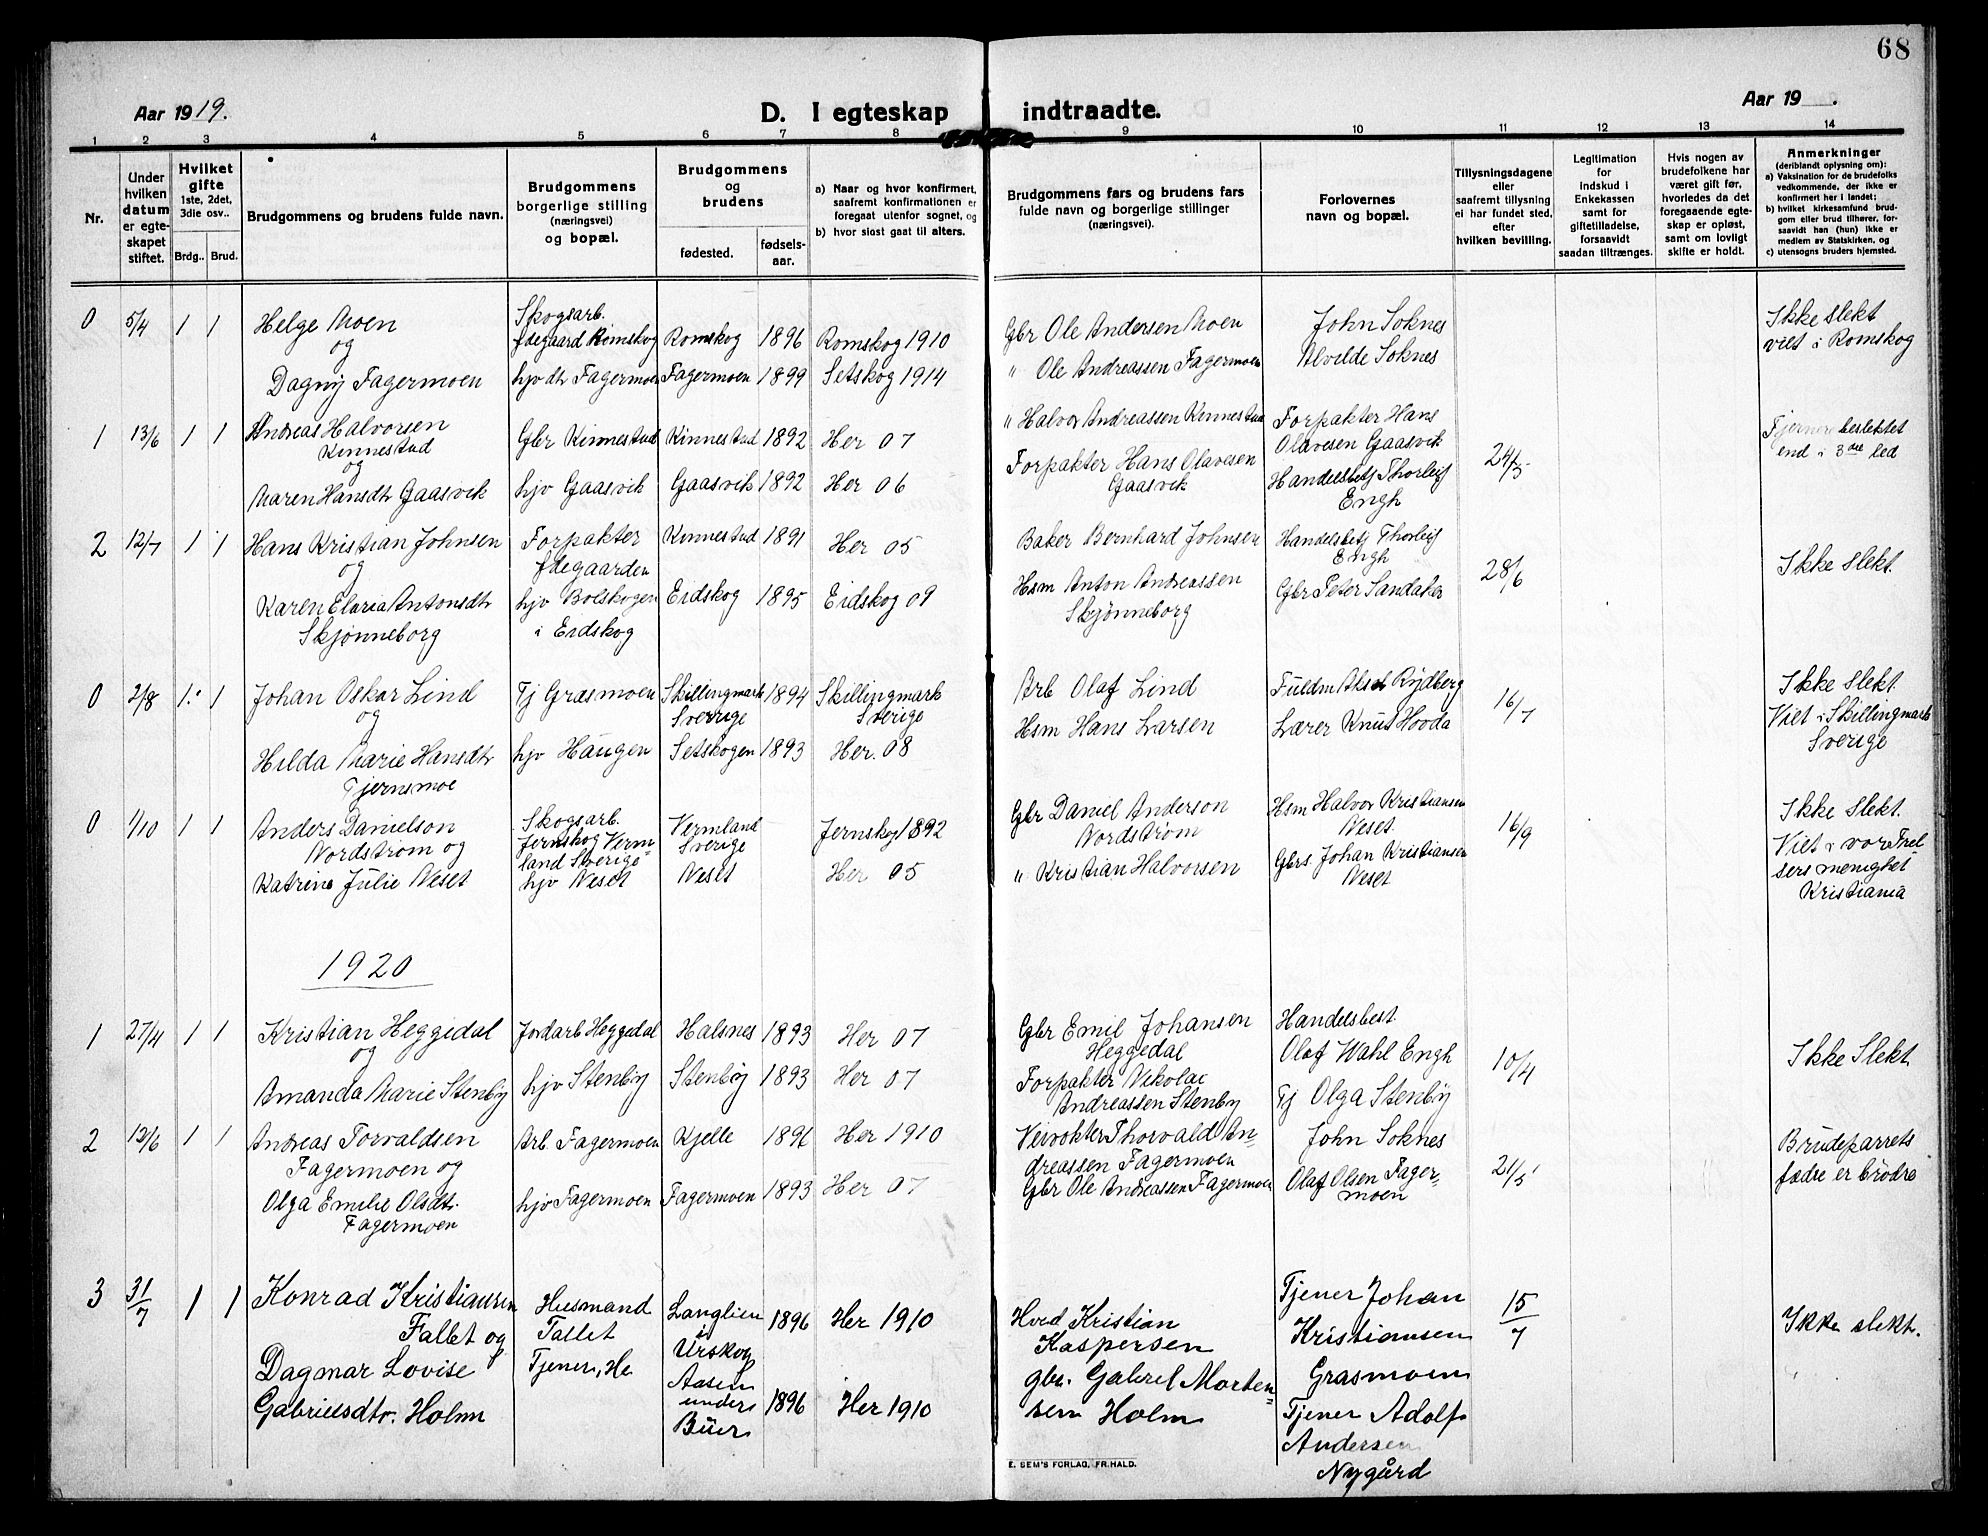 68
Aar 1919.
D. I egteskap indtraadte.
Aar 19 .
1 2 3 4 5 6 7 8 9 10 11 12 13 14
Nr.
Under hvilken datum er egteskapet stiftet.
Hvilket gifte 1ste, 2det, 3die osv..
Brdg.. Brud.
Brudgommens og brudens fulde navn.
Brudgommens borgerlige stilling (næringsvei) og bopæl.
Brudgommens og brudens
fødested. fødselsaar.
a) Naar og hvor konfirmert, saafremt konfirmationen er foregaat utenfor sognet, og
b) hvor sidst gaat til alters.
Brudgommens fars og brudens fars fulde navn og borgerlige stillinger (næringsvei).
Forlovernes navn og bopæl.
Tillysningsdagene eller saafremt tillysning ei har fundet sted, efter hvilken bevilling.
Legitimation for indskud i Enkekassen samt for giftetilladelse, forsaavidt saadan tiltrænges.
Hvis nogen av brudefolkene har været gift før, hvorledes da det foregaaende egteskap er opløst, samt om lovligt skifte er holdt.
Anmerkninger (deriblandt oplysning om):
a) Vaksination for de brudefolks vedkommende, der ikke er konfirmert her i landet;
b) hvilket kirkesamfund brudgom eller brud tilhører, forsaavidt han (hun) ikke er medlem av Statskirken, og
c) utensogns bruders hjemsted.
0 5/4 1 1 Helge Moen Skogsarb. Ødegaard Romskog Romskog 1896 Romskog 1910 Gbr Ole Andersen Moen John Soknes Ikke slekt
og
Dagny Fagermoen hjv dtr Fagermoen Fagermoen 1899 Setskog 1914 " Ole Andreassen Fagermoen Alvilde Soknes viet i Romskog
1 13/6 1 1 Andreas Halvorsen Kinnestad Gbr Kinnestad Kinnestad 1892 Her 07 " Halvor Andreassen Kinnestad Forpakter Hans Olavesen Gaasvik 24/5 Fjernere beslektet end i 3die led
og
Maren Hansdtr Gaasvik hjv Gaasvik Gaasvik 1892 Her 06 Forpakter Hans Olavesen Gaasvik Handelsbetj Thorleif Engh
2 12/7 1 1 Hans Kristian Johnsen Forpakter Ødegaarden Kinnestad 1891 Her 05 Baker Bernhard Johnsen Handelsbetj Thorleif Engh 28/6 Ikke Slekt.
og
Karen Elaria Antonsdtr Skjønneborg hjv Bolskogen i Eidskog Eidskog 1895 Eidskog 09 Hsm Anton Andreassen Skjønneborg Gbr Peter Sandaker
0 2/8 1 1 Johan Oskar Lind Tj Grasmoen Skillingmark Sverige 1894 Skillingmark Sverige Arb Olaf Lind Fuldm Aksel Rydberg 16/7 Ikke Slekt.
og
Hilda Marie Hansdtr Tjernsmoe hjv Haugen Setskogen 1893 Her. 08 Hsm Hans Larsen Lærer Knut Hovda Viet i Skillingmark Sverige
0 1/10 1 1 Anders Danielson Nordstrøm og Skogsarb. Jernskog Vermland Sverige Vermland Sverige Jernskog 1892 Gbr Daniel Anderson Nordstrøm Hsm Halvor Kristiansen Neset 16/9 Ikke Slekt.
Katrine Julie Neset hjv Neset Neset Her 05 " Kristian Halvorsen Gbrs. Johan Kristiansen Neset Viet i vor Frelsers menighet Kristiania
1920
1 27/4 1 1 Kristian Heggedal Jordarb Heggedal Halsnes 1893 Her 07 Gbr Emil Johansen Heggedal Handelsbest. Olaf Wahl Engh 10/4 Ikke Slekt
og
Amanda Marie Stenby hjv Stenby Stenby 1893 Her 07 Forpakter Nikolai Andreassen Stenby Tj Olga Stenby
2 12/6 1 1 Andreas Torvaldsen Fagermoen og Arb. Fagermoen Kjelle 1896 Her 1910 Veivokter Thorvald Andreassen Fagermoen John Soknes 21/5 Brudeparrets fædre er brødre
Olga Emilie Olsdtr. Fagermoen hjv Fagermoen Fagermoen 1893 Her 07 Gbr Ole Andreassen Fagermoen Olaf Olsen Fagermoen
3 31/7 1 1 Konrad Kristiansen Fallet og Husmand Fallet Langlien i Urskog 1896 Her 1910 Hvd Kristian Kaspersen Tjener Johan Kristiansen Grasmoen 15/7 Ikke slekt.
Dagmar Lovise Gabrielsdtr. Holm Tjener, He Aasen under Buer 1896 Her 1910 gbr. Gabriel Mortensen Holm Tjener Adolf Andersen Nygård
E. SEM'S FORLAG, FR.HALD.